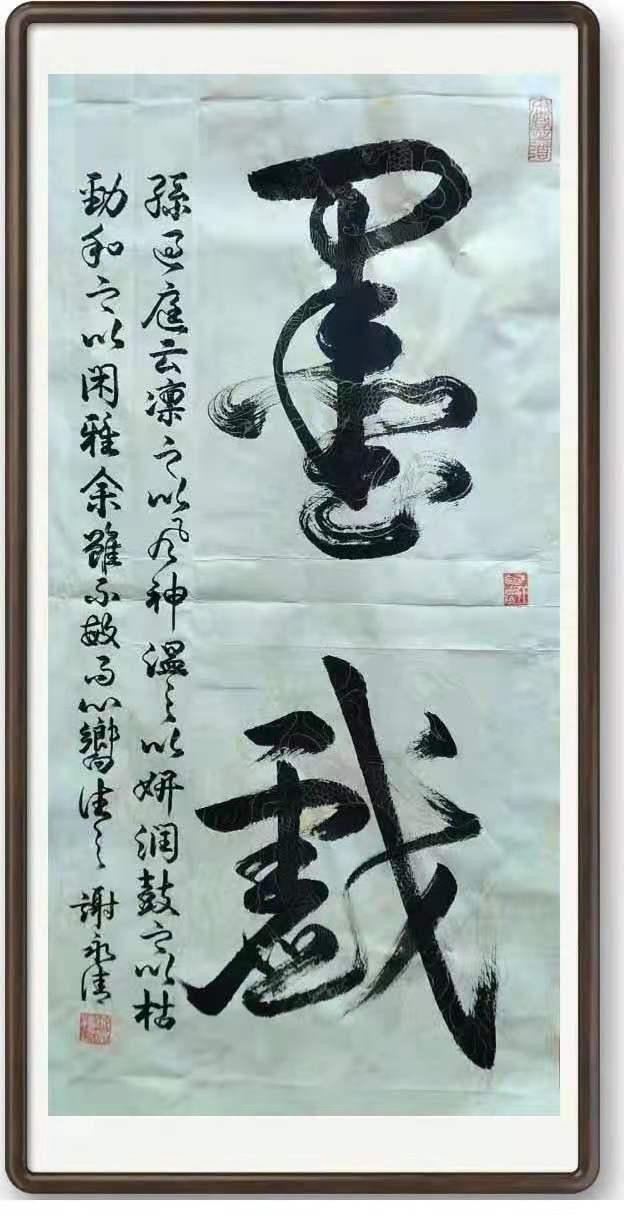 墨戲
孫過庭云凛之以风神温之以妍润鼓之以枯
勁和之以閑雅余雖不敏而心嚮往之 謝永清